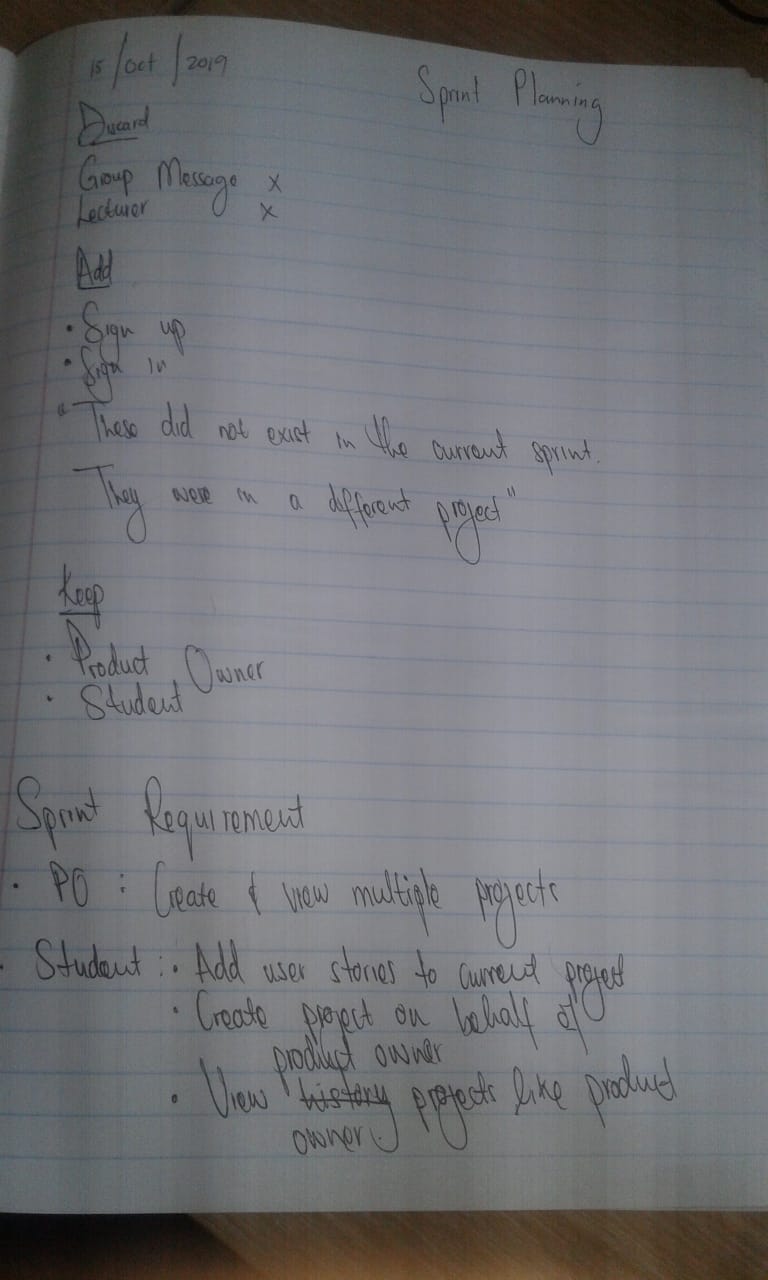 15/Oct/2019
Sprint Planning
Discard
Group Message x
Lecturer x
Add
• Sign up
• Sign in
"These did not exist in the current sprint.
They were in a different project"
Keep
• Product Owner
• Student
Sprint Requirement
• PO : Create & view multiple projects
• Student : • Add user stories to current project
• Create project on behalf of
product owner
• View history projects like product
owner.